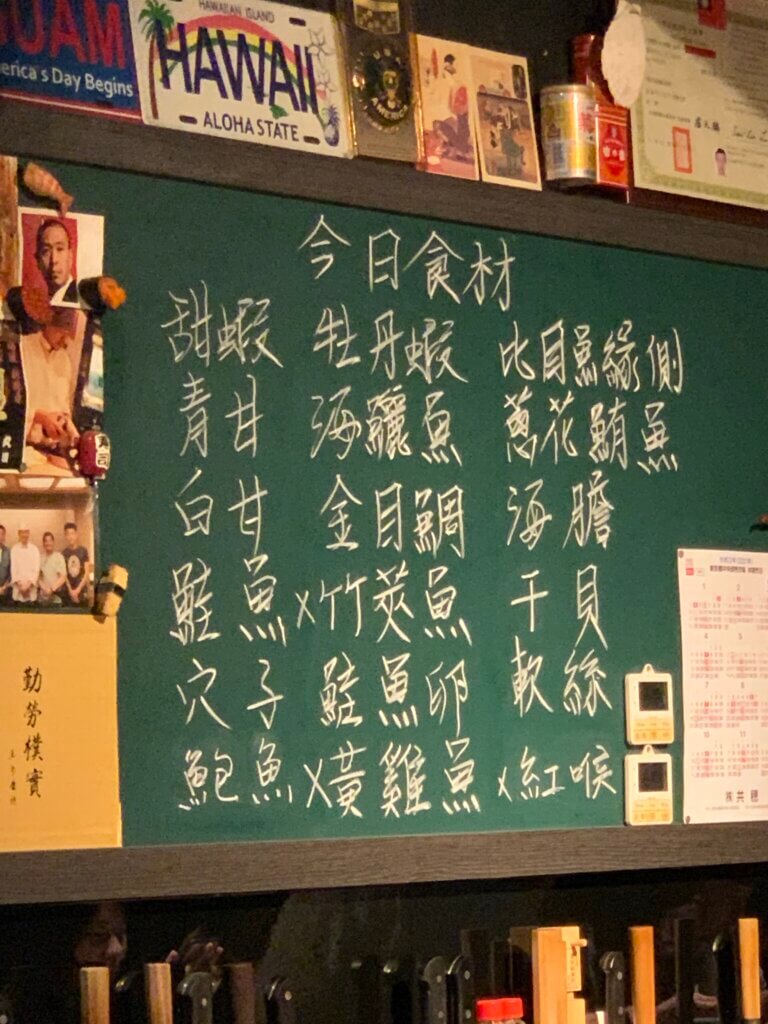 GUAM
America's Day Begins
HAWAIIAN ISLAND
HAWAII
ALOHA STATE
今日食材
甜蝦 牡丹蝦 比目魚緣側
青甘 海鱺魚 蔥花鮪魚
白甘 金目鯛 海膽
鮭魚 x竹莢魚 干貝
穴子 鮭魚卵 軟絲
鮑魚 x黃雞魚 x紅喉
勤勞樸實
1 2
4
7 8
10 11
㈱共穗